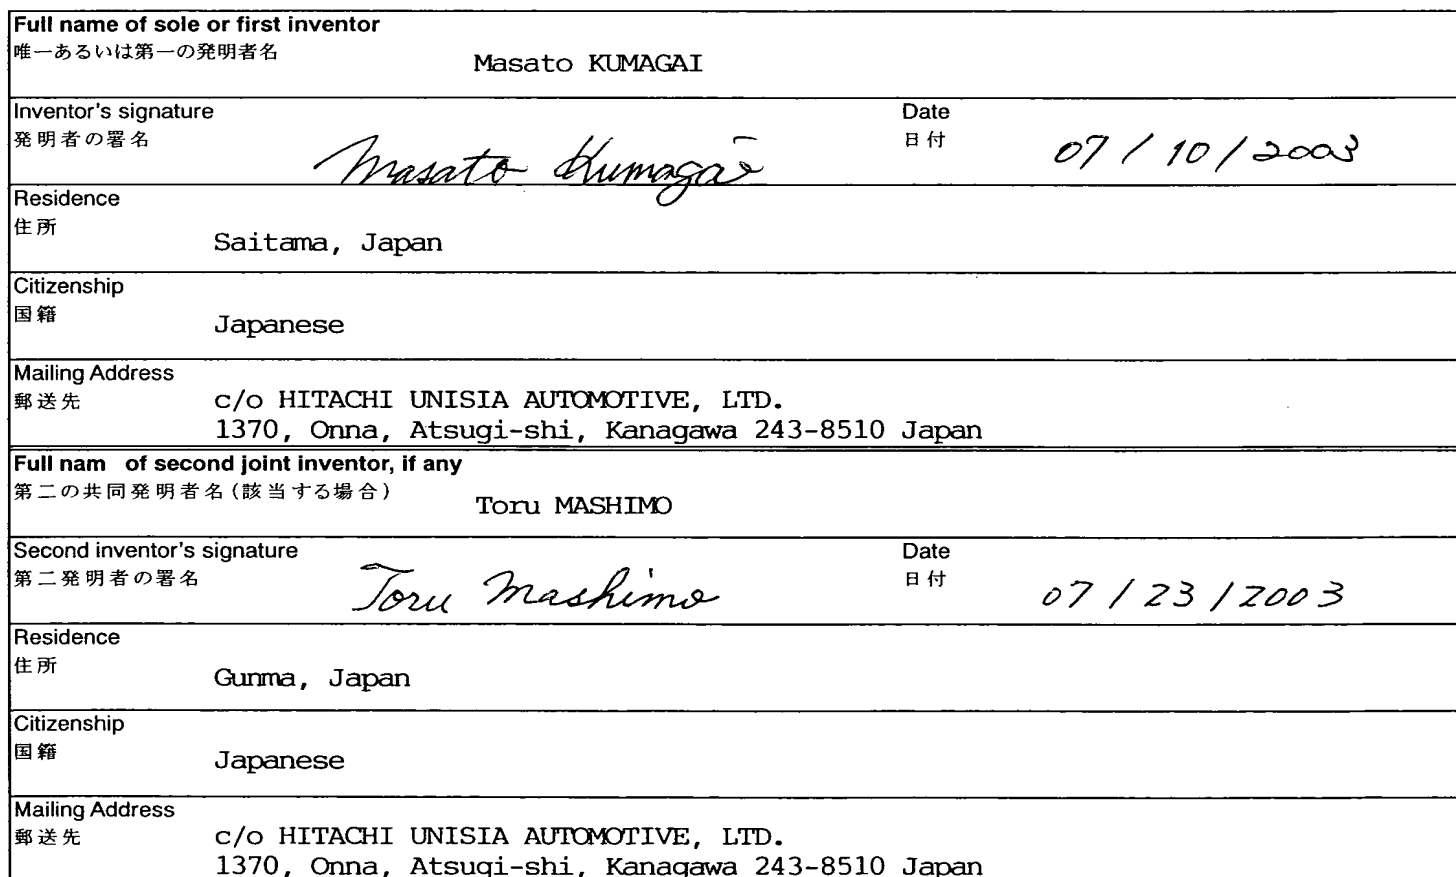 Full name of sole or first inventor
唯一あるいは第一の発明者名
Masato KUMAGAI
Inventor's signature
発明者の署名
Masato Kumagai
Date
日付
07 / 10 / 2003
Residence
住所
Saitama, Japan
Citizenship
国籍
Japanese
Mailing Address
郵送先
c/o HITACHI UNISIA AUTOMOTIVE, LTD.
1370, Onna, Atsugi-shi, Kanagawa 243-8510 Japan
Full nam of second joint inventor, if any
第二の共同発明者名(該当する場合)
Toru MASHIMO
Second inventor's signature
第二発明者の署名
Toru Mashimo
Date
日付
07 / 23 / 2003
Residence
住所
Gunma, Japan
Citizenship
国籍
Japanese
Mailing Address
郵送先
c/o HITACHI UNISIA AUTOMOTIVE, LTD.
1370, Onna, Atsugi-shi, Kanagawa 243-8510 Japan